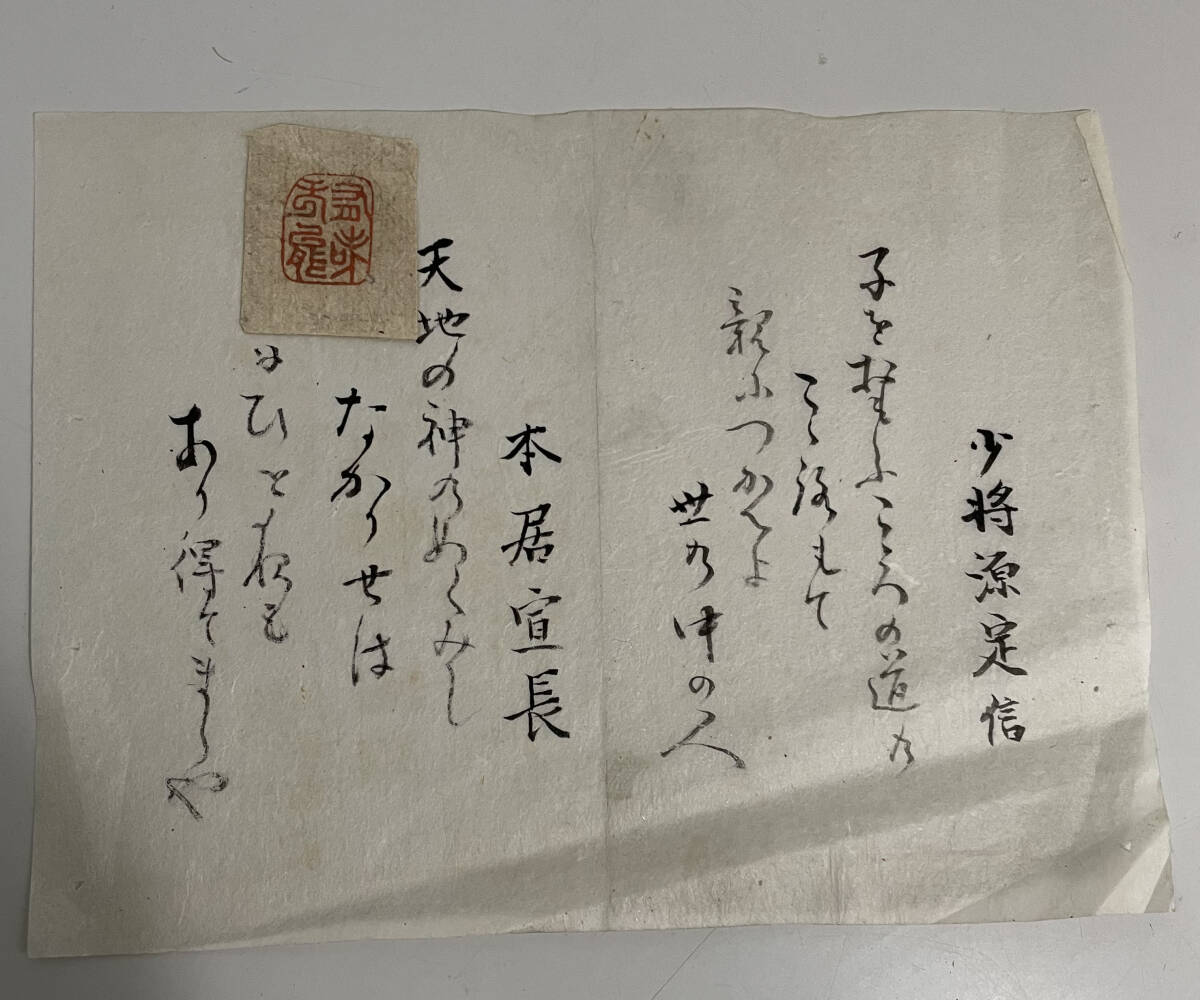 少将源定信
子をおもふこころの道の
こゝろもて
親につかへよ
世の中の人
本居宣長
天地の神のめくみし
なかりせは
日ひと夜も
あり得てましや